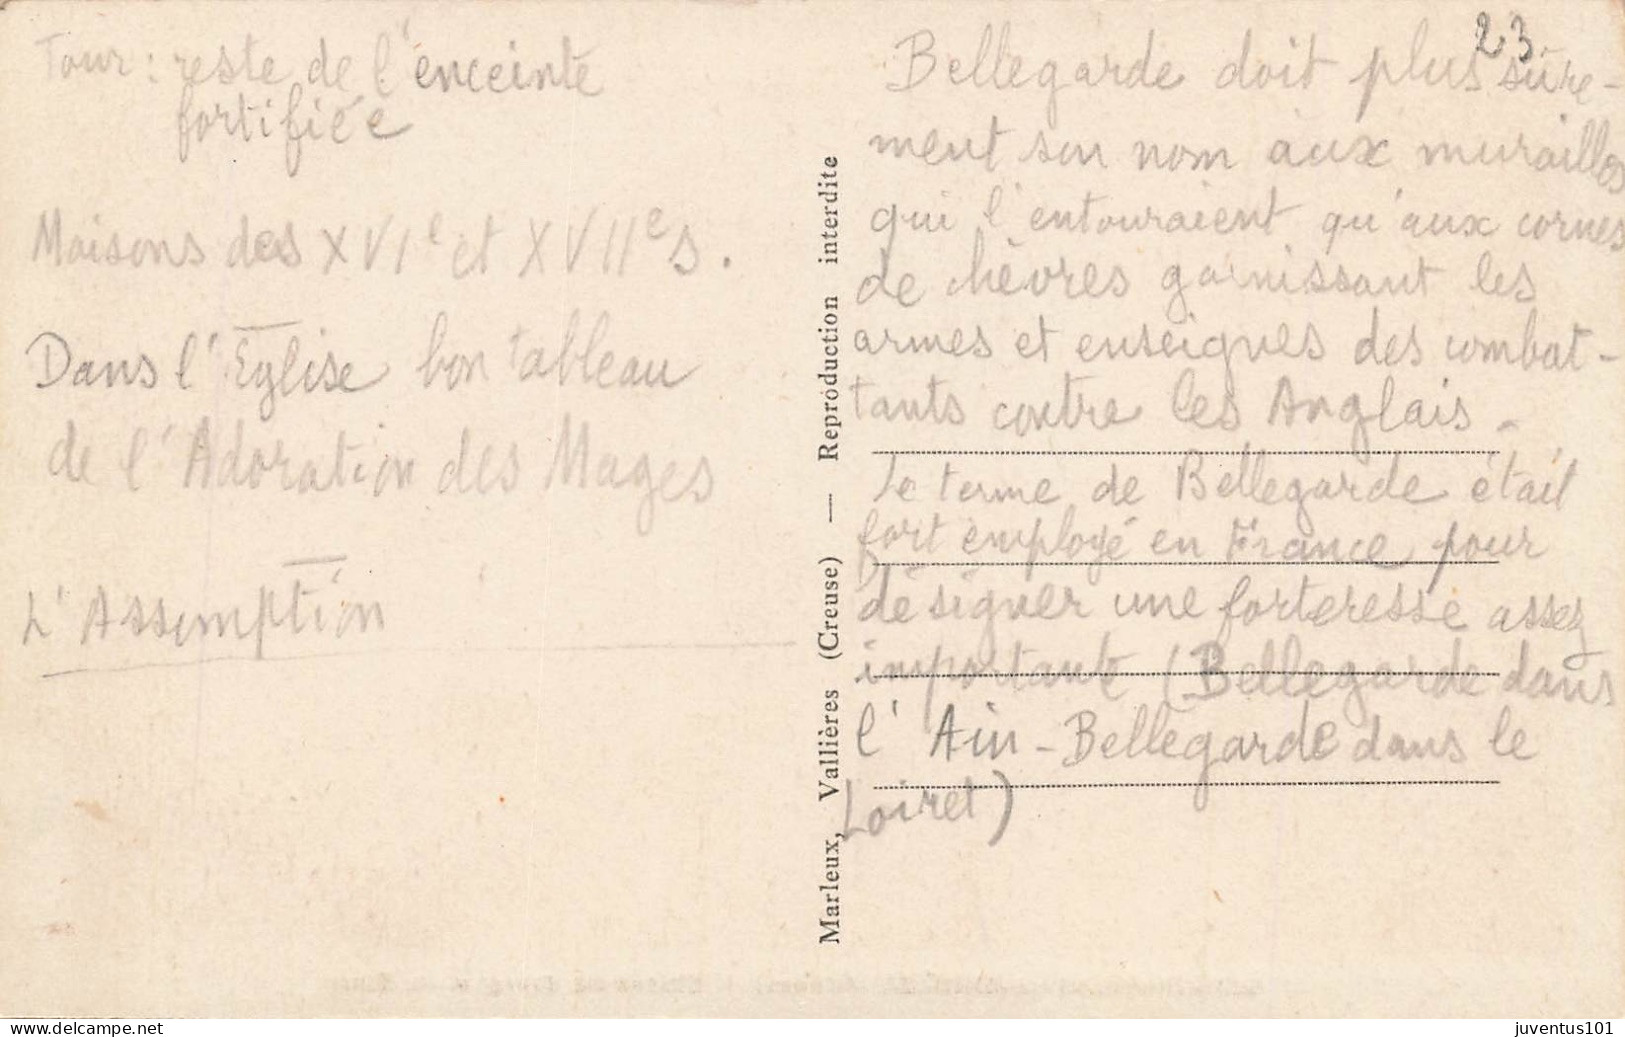 Tour : reste de l'enceinte
fortifiée
Maisons des XVIe et XVIIe s.
Dans l'Eglise bon tableau
de l'Adoration des Mages
L'Assomption
Marleux, Vallières (Creuse) — Reproduction interdite
23
Bellegarde doit plus sûre-
ment son nom aux murailles
qui l'entouraient qu'aux cornes
de lièvres garnissant les
armes et enseignes des combat-
tants contre les Anglais.
Le terme de Bellegarde était
fort employé en France pour
désigner une forteresse assez
importante (Bellegarde dans
l'Ain - Bellegarde dans le
Loiret)
juventus101